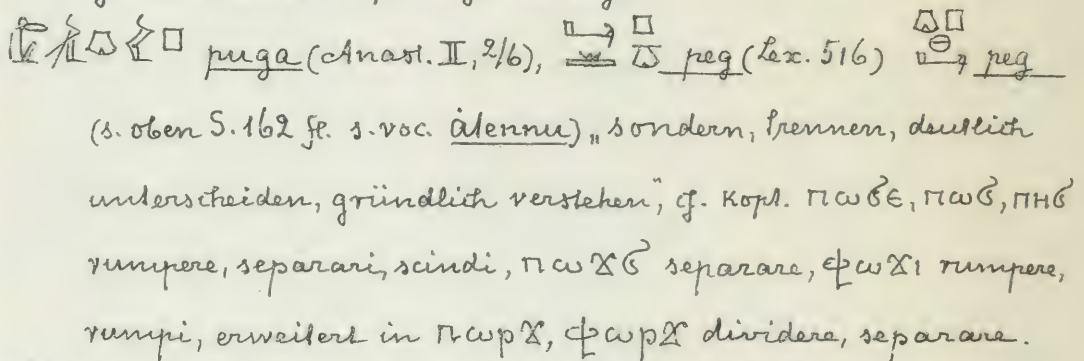 puga (Anast. II, 2/6), peg (Lex. 516) peg
(s. oben S. 162 ff. s. voc. àtennu) „sondern, trennen, deutlich
unterscheiden, gründlich verstehen", cf. Kopt. ⲡⲱϭⲉ, ⲡⲱϭ, ⲡⲏϭ
rumpere, separari, scindi, ⲡⲱϫϭ separare, ⲫⲱϫⲓ rumpere,
rumpi, erweitert in ⲡⲱⲣϫ, ⲫⲱⲣϫ dividere, separare.